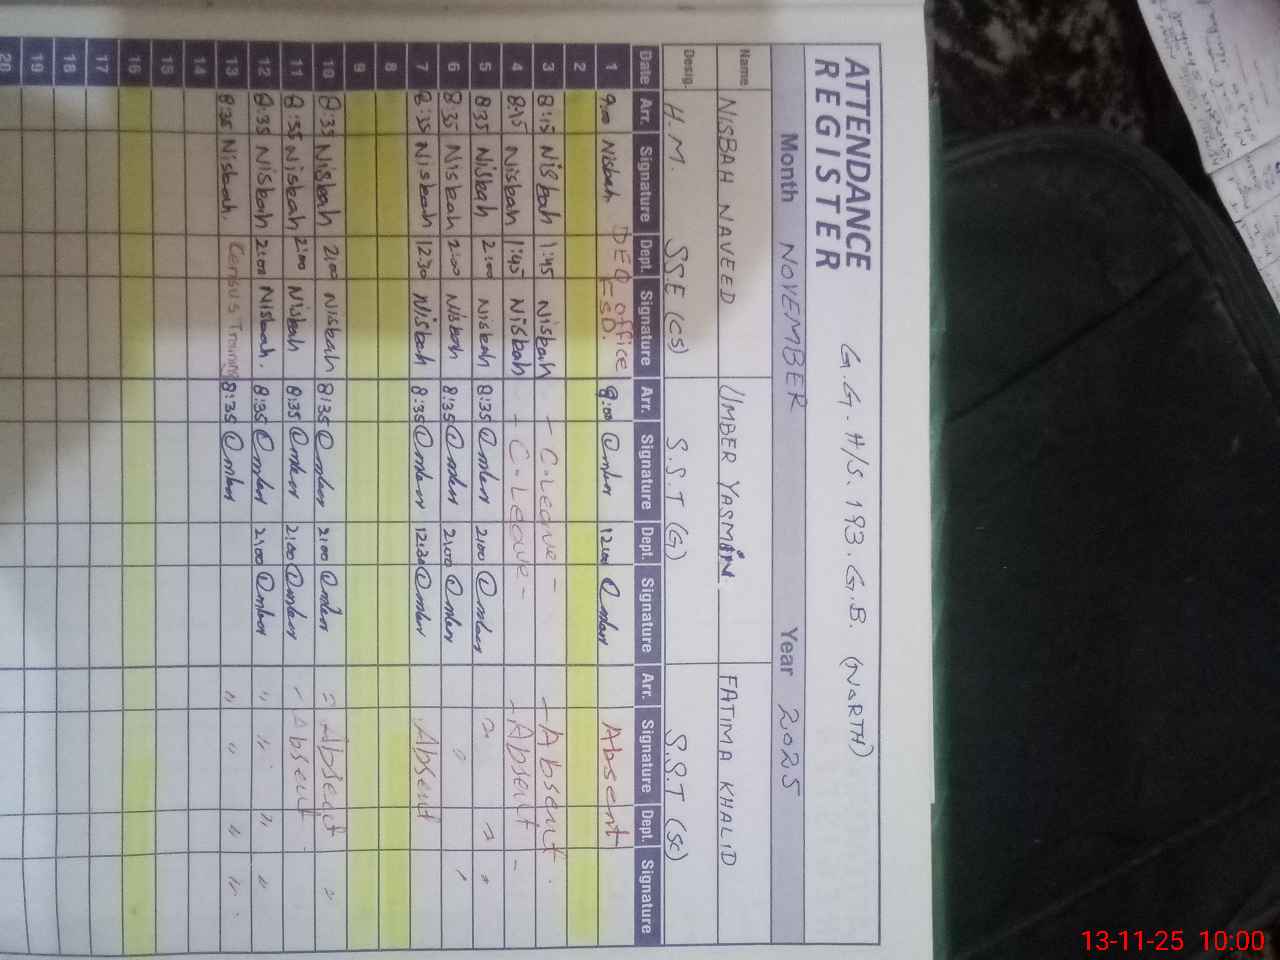 ATTENDANCE REGISTER
G.G.H/S. 193.G.B. (NORTH)
Month NOVEMBER Year 2025
Name NISBAH NAVEED UMBER YASMIN. FATIMA KHALID
Desig. H.M. SSE (CS) S.S.T (G) S.S.T (SC)
Date Arr. Signature Dept. Signature Arr. Signature Dept. Signature Arr. Signature Dept. Signature
1 9:00 Nisbah DEO office FSD. 9:00 Umber 12:00 Umber Absent
2
3 8:15 Nisbah 1:45 Nisbah - C.Leave - - Absent.
4 8:15 Nisbah 1:45 Nisbah - C.Leave - - Absent -
5 8:35 Nisbah 2:00 Nisbah 8:35 Umber 2:00 Umber " " "
6 8:35 Nisbah 2:00 Nisbah 8:35 Umber 2:00 Umber " "
7 8:35 Nisbah 12:30 Nisbah 8:35 Umber 12:30 Umber Absent
8
9
10 8:35 Nisbah 2:00 Nisbah 8:35 Umber 2:00 Umber = Absent "
11 8:35 Nisbah 2:00 Nisbah 8:35 Umber 2:00 Umber - Absent
12 8:35 Nisbah 2:00 Nisbah. 8:35 Umber 2:00 Umber " " " "
13 8:35 Nisbah. Census Training 8:35 Umber " " " "
14
15
16
17
18
19
20
13-11-25 10:00